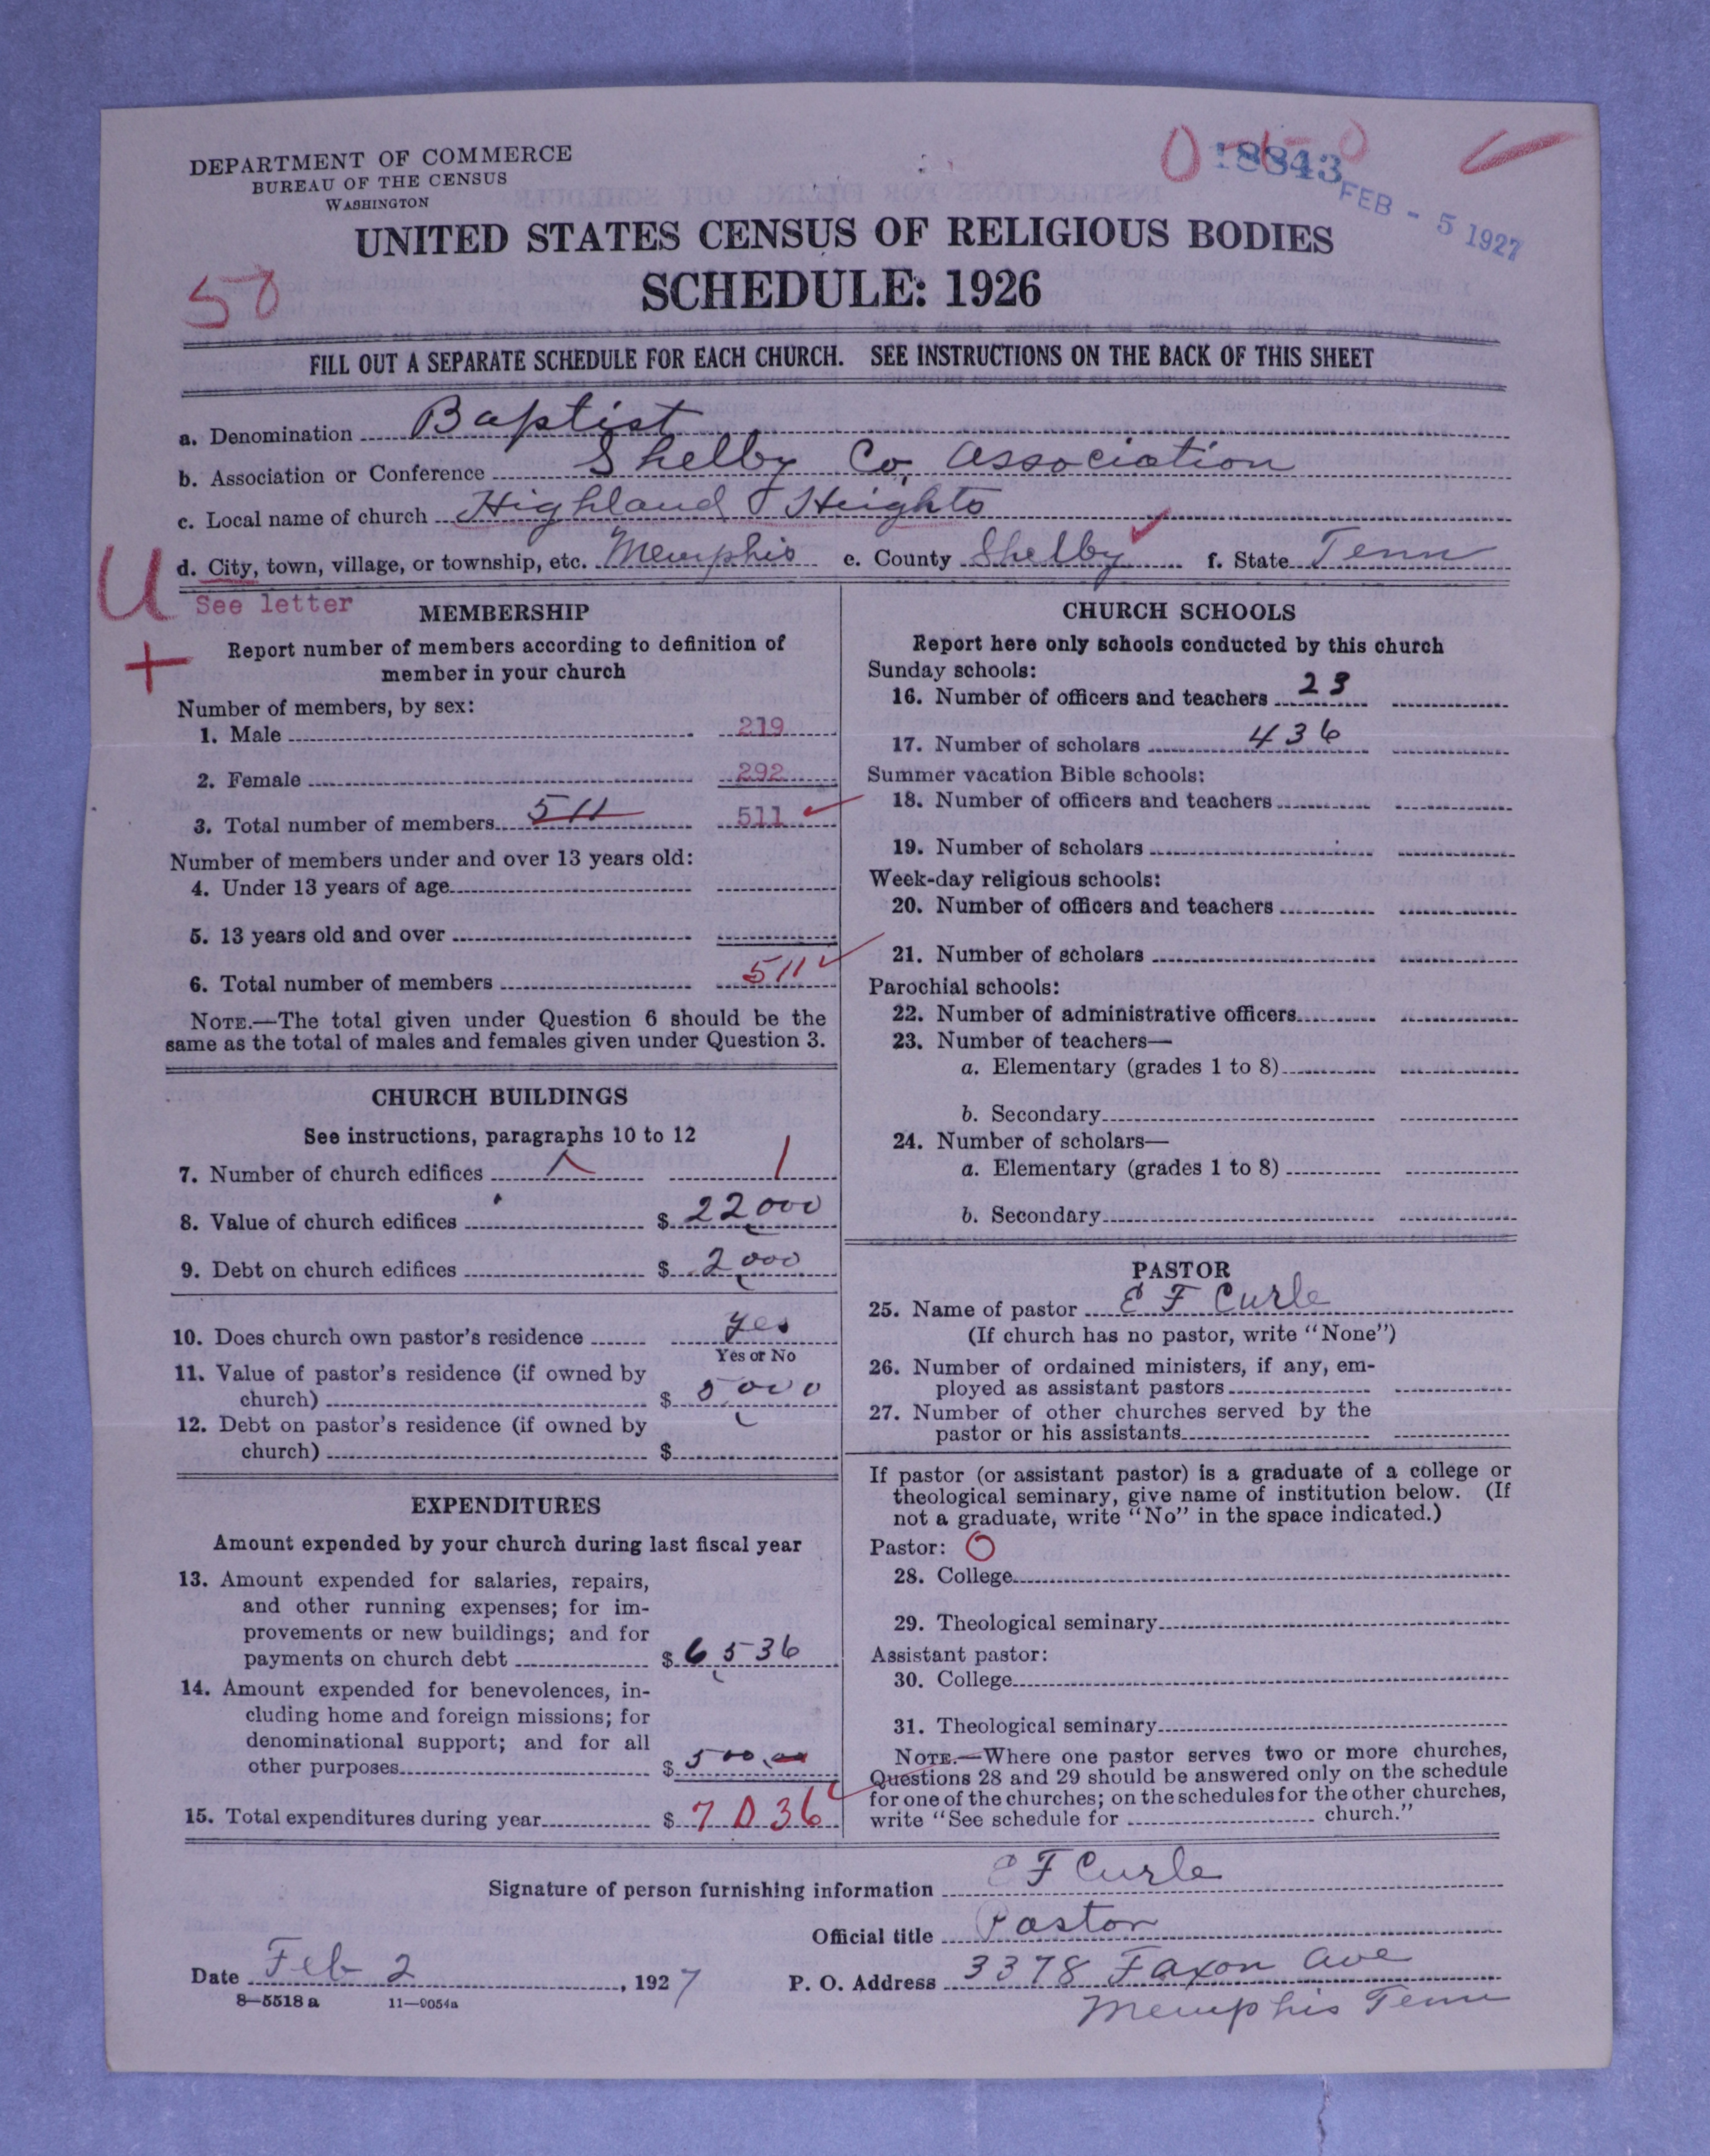 DEPARTMENT OF COMMERCE
BUREAU OF THE CENSUS
WASHINGTON
18843
FEB - 5 1927
UNITED STATES CENSUS OF RELIGIOUS BODIES
SCHEDULE: 1926
50
FILL OUT A SEPARATE SCHEDULE FOR EACH CHURCH. SEE INSTRUCTIONS ON THE BACK OF THIS SHEET
a. Denomination Baptist
b. Association or Conference Shelby Co. Association
c. Local name of church Highland Heights
d. City, town, village, or township, etc. Memphis e. County Shelby f. State Tenn
U
See letter
+
MEMBERSHIP
Report number of members according to definition of
member in your church
Number of members, by sex:
1. Male 219
2. Female 292
3. Total number of members 511 511
Number of members under and over 13 years old:
4. Under 13 years of age
5. 13 years old and over
6. Total number of members 511
NOTE.—The total given under Question 6 should be the
same as the total of males and females given under Question 3.
CHURCH BUILDINGS
See instructions, paragraphs 10 to 12
7. Number of church edifices 1 1
8. Value of church edifices $ 22,000
9. Debt on church edifices $ 2,000
10. Does church own pastor's residence Yes
Yes or No
11. Value of pastor's residence (if owned by
church) $ 5,000
12. Debt on pastor's residence (if owned by
church) $
EXPENDITURES
Amount expended by your church during last fiscal year
13. Amount expended for salaries, repairs,
and other running expenses; for im-
provements or new buildings; and for
payments on church debt $ 6,536
14. Amount expended for benevolences, in-
cluding home and foreign missions; for
denominational support; and for all
other purposes $ 500.00
15. Total expenditures during year $ 7036
CHURCH SCHOOLS
Report here only schools conducted by this church
Sunday schools:
16. Number of officers and teachers 23
17. Number of scholars 436
Summer vacation Bible schools:
18. Number of officers and teachers
19. Number of scholars
Week-day religious schools:
20. Number of officers and teachers
21. Number of scholars
Parochial schools:
22. Number of administrative officers
23. Number of teachers—
a. Elementary (grades 1 to 8)
b. Secondary
24. Number of scholars—
a. Elementary (grades 1 to 8)
b. Secondary
PASTOR
25. Name of pastor E F Curle
(If church has no pastor, write "None")
26. Number of ordained ministers, if any, em-
ployed as assistant pastors
27. Number of other churches served by the
pastor or his assistants
If pastor (or assistant pastor) is a graduate of a college or
theological seminary, give name of institution below. (If
not a graduate, write "No" in the space indicated.)
Pastor: O
28. College
29. Theological seminary
Assistant pastor:
30. College
31. Theological seminary
NOTE.—Where one pastor serves two or more churches,
Questions 28 and 29 should be answered only on the schedule
for one of the churches; on the schedules for the other churches,
write "See schedule for church."
Signature of person furnishing information E F Curle
Official title Pastor
Date Feb 2, 1927 P. O. Address 3378 Faxon Ave
Memphis Tenn
8—5518 a 11—9054a